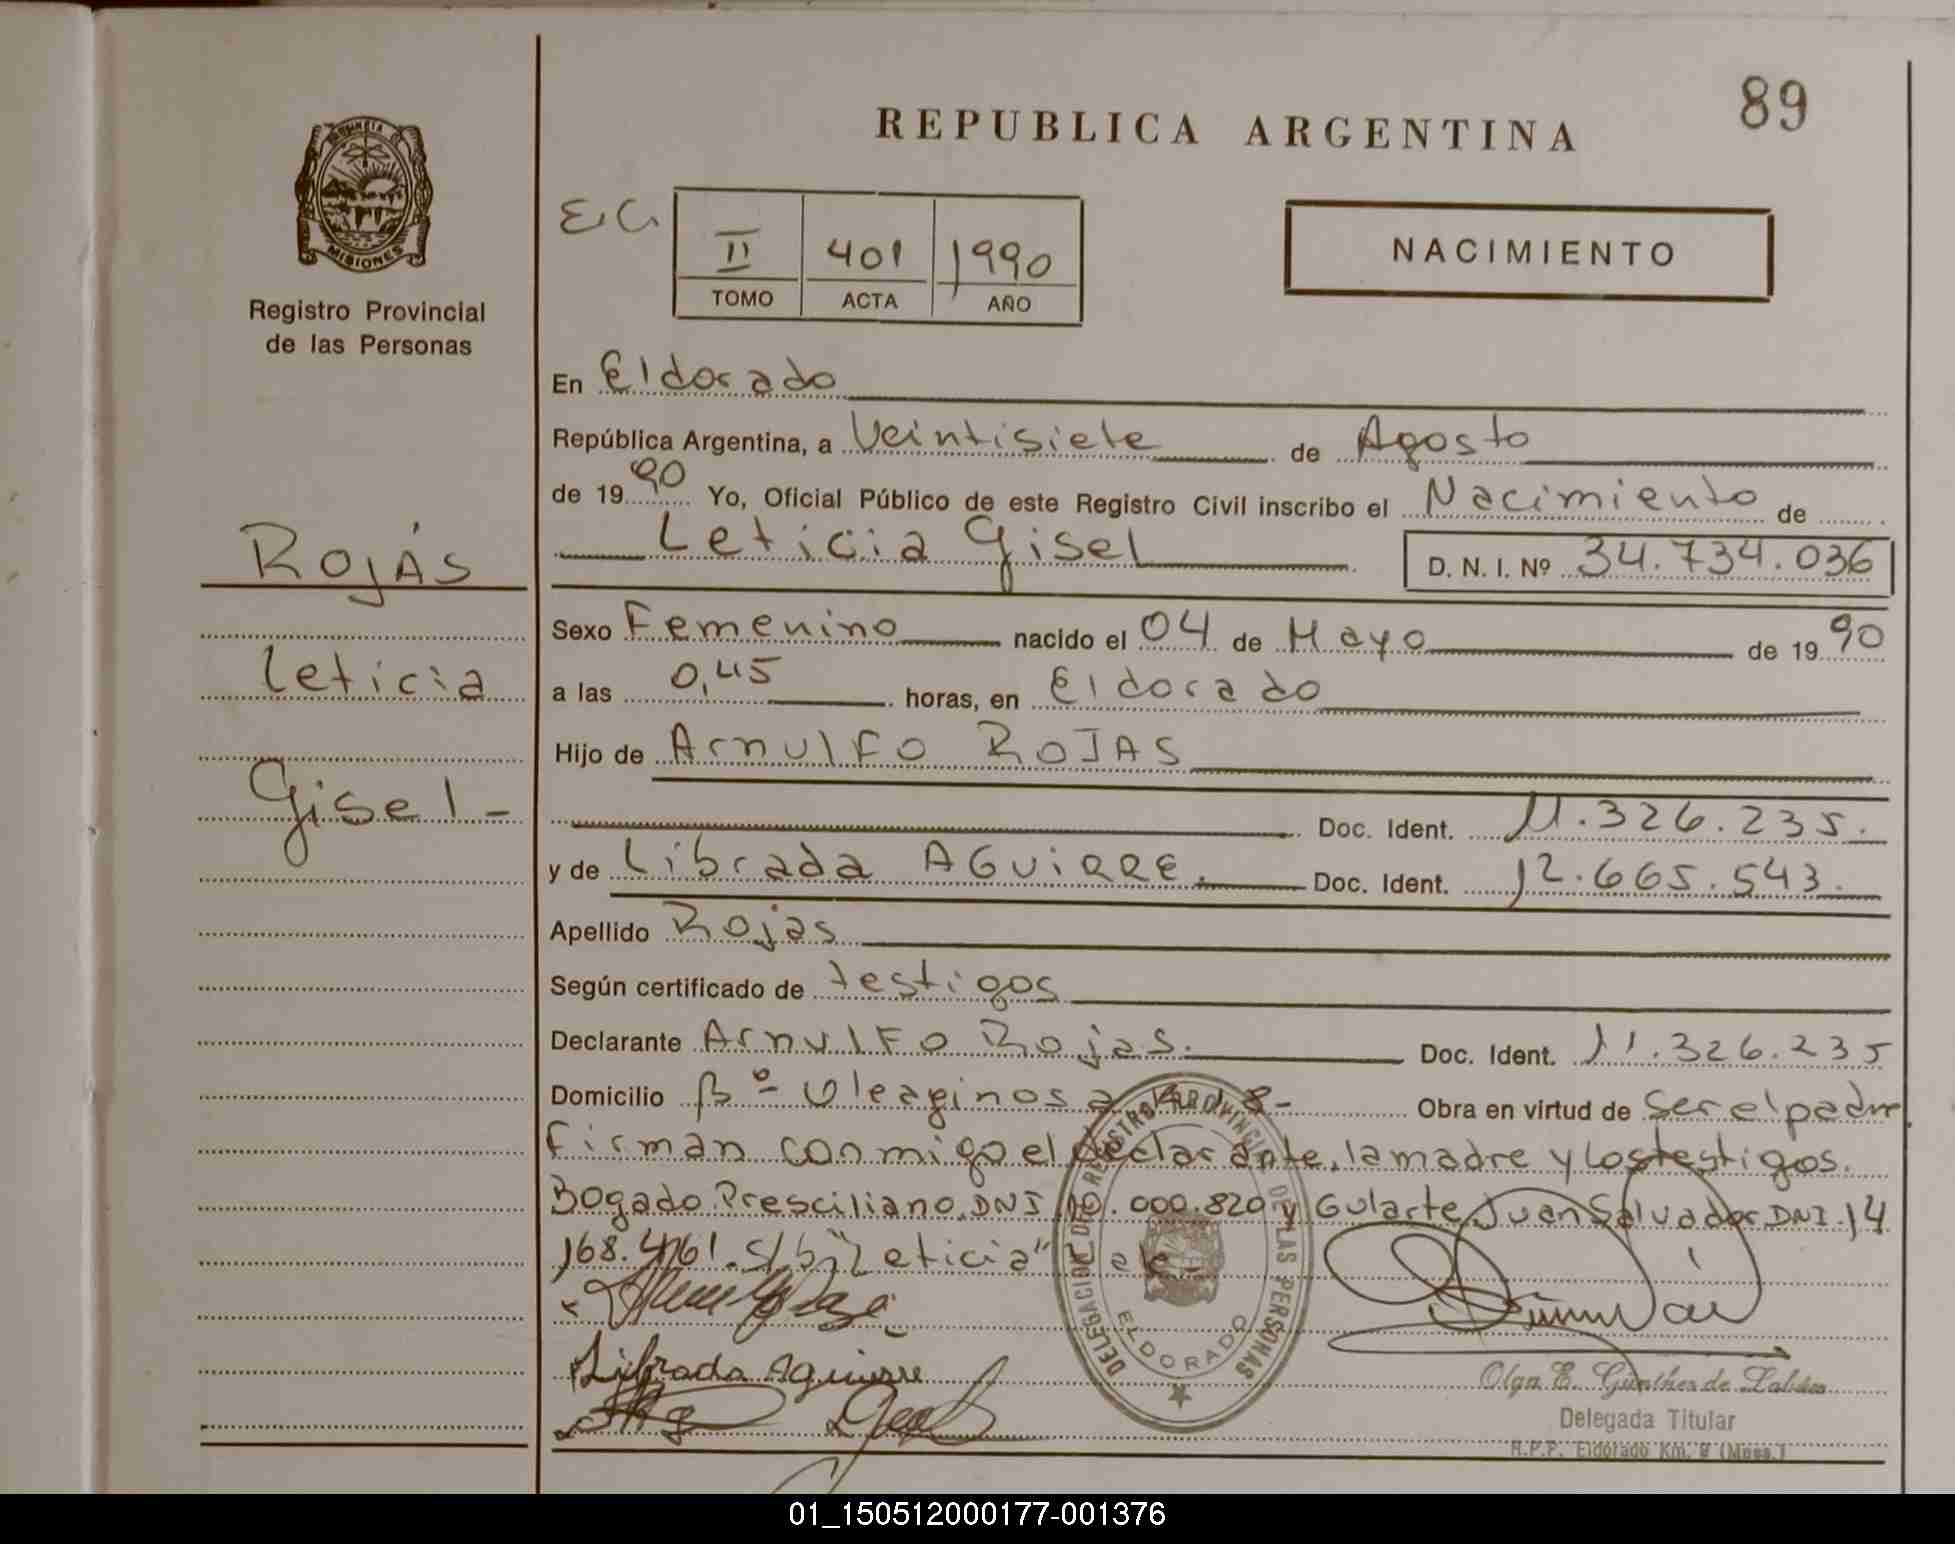 89
REPUBLICA ARGENTINA
PROVINCIA DE
MISIONES
Registro Provincial
de las Personas
E.C.
II 401 1990
TOMO ACTA AÑO
NACIMIENTO
Rojás
Leticia
Gisel -
En Eldorado
República Argentina, a Veintisiete de Agosto
de 1990 Yo, Oficial Público de este Registro Civil inscribo el Nacimiento de
Leticia Gisel D. N. I. Nº 34.734.036
Sexo Femenino nacido el 04 de Mayo de 1990
a las 0,45 horas, en Eldorado
Hijo de Arnulfo ROJAS
Doc. Ident. 11.326.235.
y de Librada AGUIRRE. Doc. Ident. 12.665.543.
Apellido Rojas
Según certificado de testigos
Declarante Arnulfo Rojas. Doc. Ident. 11.326.235
Domicilio Bº Oleaginosa 8- Obra en virtud de ser el padre
Firman conmigo el declarante, la madre y los testigos.
Bogado Presciliano DNI 10.000.820 y Gularte, Juan Salvador DNI. 14
168.461. s/b "Leticia" vale
Librada Aguirre
DELEGACION DEL REGISTRO PROVINCIAL DE LAS PERSONAS
ELDORADO
Olga E. Günther de
Delegada Titular
R.P.P. Eldorado Km. 9 (Mnes.)
01_150512000177-001376